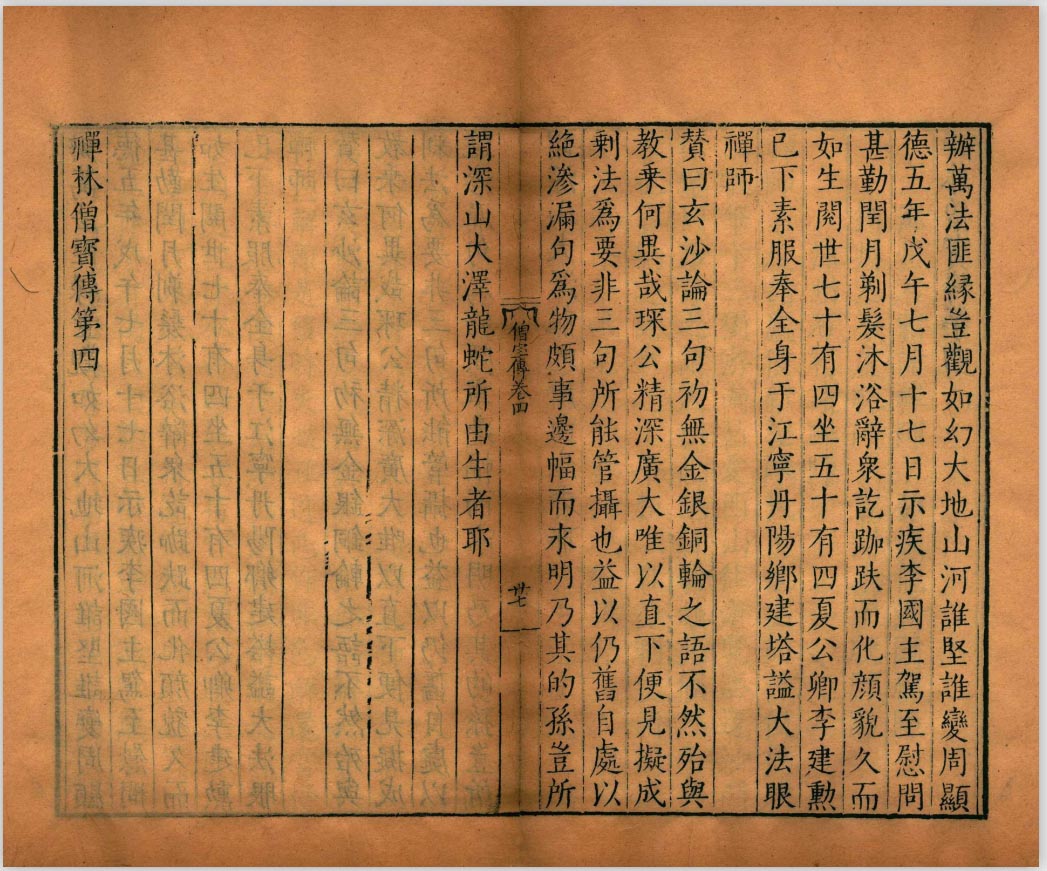 辦萬法匪緣豈觀如幻大地山河誰堅誰變周顯
德五年戊午七月十七日示疾李國主駕至慰問
甚勤閏月剃髮沐浴辭衆訖跏趺而化顏貌久而
如生閱世七十有四坐五十有四夏公卿李建勳
已下素服奉全身于江寧丹陽鄉建塔謚大法眼
禪師
賛曰玄沙論三句初無金銀銅輪之語不然殆與
教乗何異哉琛公精深廣大唯以直下便見擬成
剰法爲要非三句所能管攝也益以仍舊自處以
絶滲漏句爲物頗事邊幅而求明乃其的孫豈所
僧宝傳卷四
廿七
謂深山大澤龍蛇所由生者耶
禪林僧寳傳第四